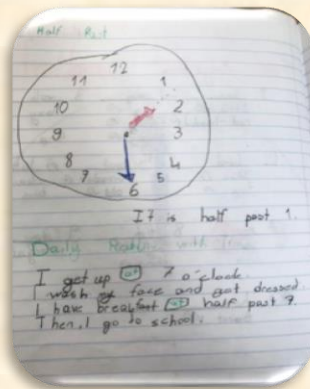 Half Past
12
11 1
10 2
9 3
8 4
7 5
6
It is half past 1.
Daily Routine with
I get up at 7 o'clock.
I wash face and get dressed.
I have breakfast at half past 7.
Then, I go to school.